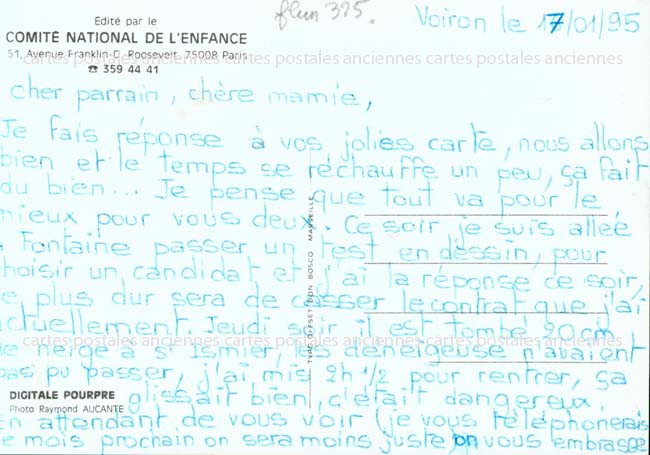 Édité par le
COMITÉ NATIONAL DE L'ENFANCE
51, Avenue Franklin-D. Roosevelt 75008 Paris
☎ 359 44 41
fleur 325.
Voiron le 17/01/95
cartes postales anciennes cartes postales anciennes cartes postales anciennes
cher parrain, chère mamie,
Je fais réponse à vos jolies carte, nous allons
bien et le temps se réchauffe un peu, ça fait
du bien... Je pense que tout va pour le
mieux pour vous deux. Ce soir je suis allée
à Fontaine passer un test en dessin, pour
choisir un candidat et j'ai la réponse ce soir,
le plus dur sera de casser le contrat que j'ai
actuellement. Jeudi soir il est tombé 20 cm
de neige à St Ismier, les déneigeuse n'avaient
cartes postales anciennes cartes postales anciennes cartes postales anciennes
pas pu passer, j'ai mis 2h 1/2 pour rentrer, ça
glissait bien, c'était dangereux.
En attendant de vous voir (je vous téléphonerais
le mois prochain on sera moins juste) on vous embrasse
DIGITALE POURPRE
Photo Raymond AUCANTE
TYPO OFFSET DON BOSCO MARSEILLE